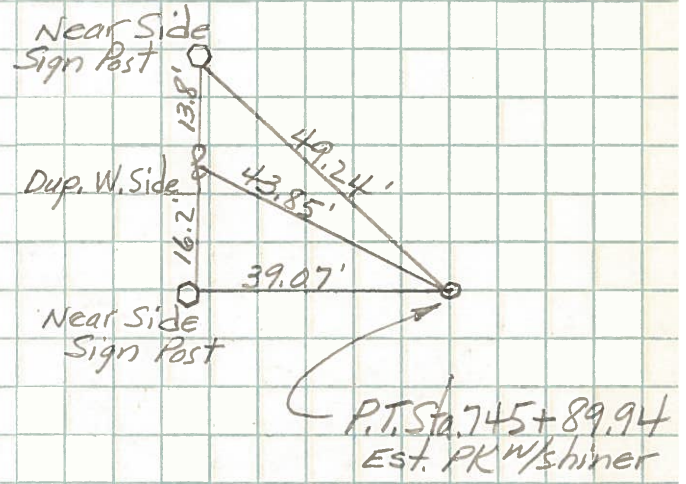 Near Side
Sign Post
13.8'
49.24'
Dup. W. Side
43.85'
16.2'
39.07'
Near Side
Sign Post
P.T. Sta. 745+89.94
Est. PK w/shiner